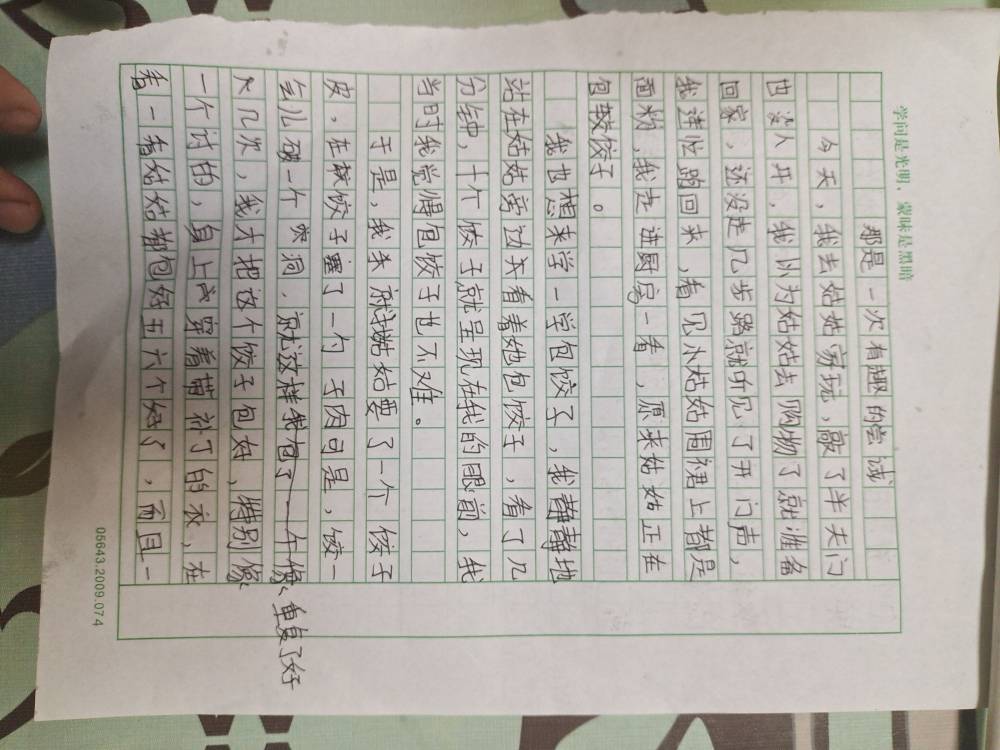 学问是光明，蒙昧是黑暗
那是一次有趣的尝试
今天，我去姑姑家玩，敲了半天门
也没人开，我以为姑姑去购物了就准备
回家，还没走几步路就听见了开门声，
我连忙跑回来，看见小姑姑围裙上都是
面粉，我走进厨房一看，原来姑姑正在
包饺子。
我也想来学一学包饺子，我静静地
站在姑姑旁边看着她包饺子，看了几
分钟，十个饺子就呈现在我的眼前，我
当时我觉得包饺子也不难。
于是，我就姑姑要了一个饺子
皮，在饺子里了一勺子肉可是，饺一
会儿破一个洞，就这样我包了一个像重复了好
几次，我才把这个饺子包好，特别像
一个讨的，身上穿着带补丁的衣，在
看一看姑姑都包好五六个好了，而且一
05643.2009.074